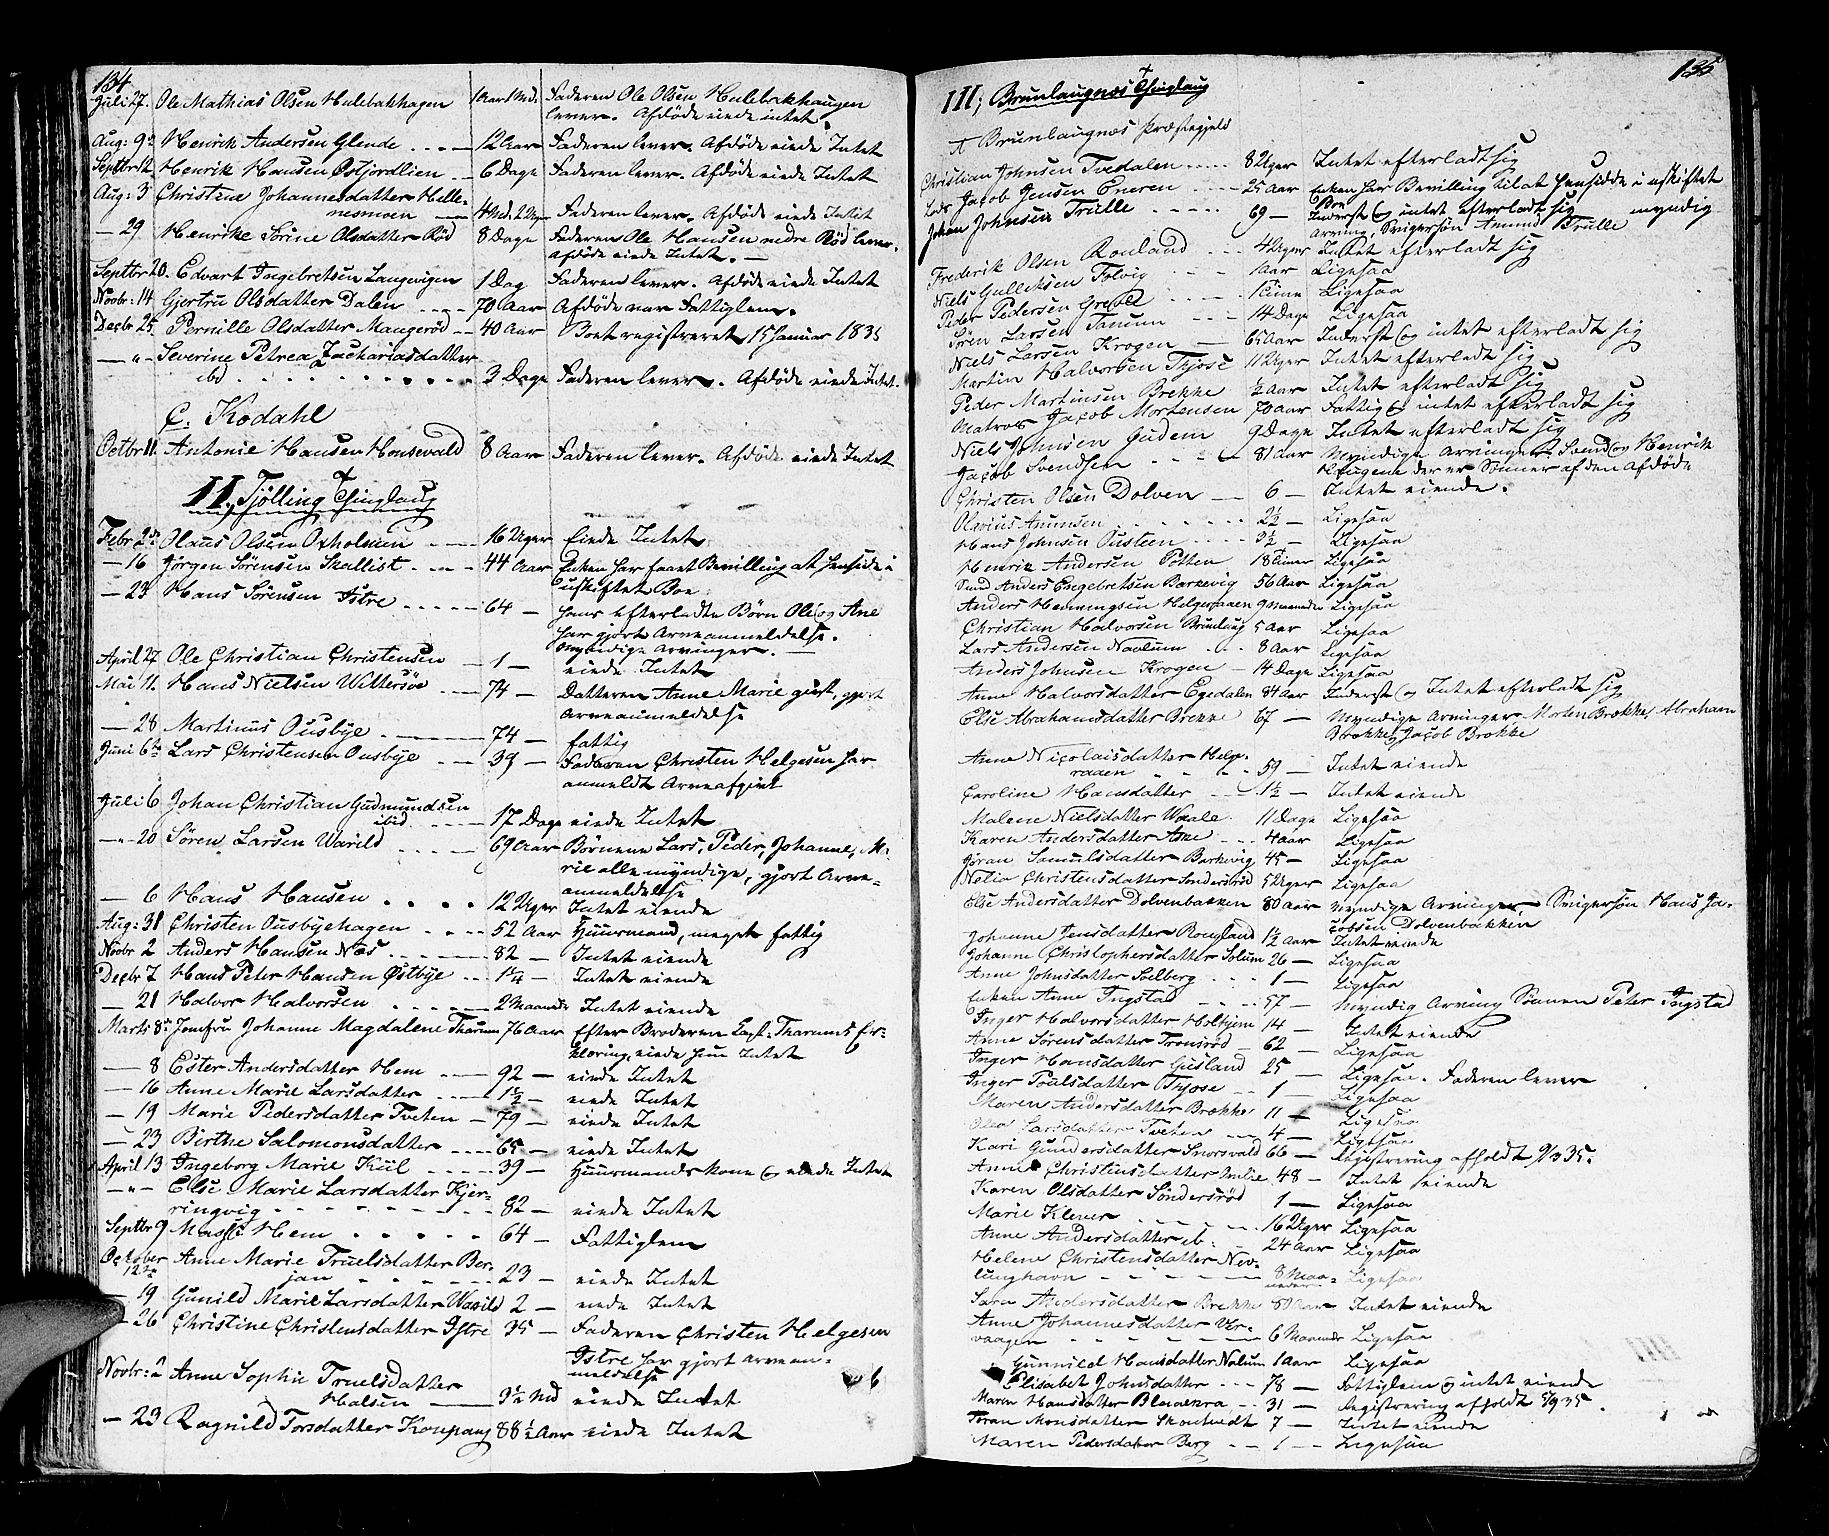 134
Juli 27. Ole Mathias Olsen Hulebakhagen 1 Aar 1 Md. Faderen Ole Olsen Hulebakhaugen
lever. Afdøde eiede intet.
Aug: 9de Henrik Andersen Glende .... 12 Aar Faderen lever. Afdøde eiede Intet
Septbr 12 Henrik Hansen Østjordlien -- 6 Dage Faderen lever. Afdøde eiede Intet
Aug: 3 Christine Johannesdatter Helle-
nesmoen 4 Md. 2 Uger Faderen lever. Afdøde eiede Intet
— 29 Henrike Sorine Olsdatter Rød 8 Dage Faderen Ole Hansen nedre Rød lever.
Afdøde eiede Intet. —
Septbr 20. Edvart Ingebretsen Langvigen 1 Dag Faderen lever. Afdøde eiede Intet
Novbr: 14 Gjertru Olsdatter Dalen ---- 70 Aar Afdøde var Fattiglem.
Decbr 25. Pernille Olsdatter Maugerød -- 40 Aar Boet registreret 15 Januar 1835
— " - Severine Petrea Zachariasdatter
ibd . . . . . . . . . . 3 Dage Faderen lever. Afdøde eiede Intet.
C. Kodahl
Octbr 11. Antonie Hansen Honsevald 8 Aar Faderen lever. Afdøde eiede Intet
II, Tjølling Thinglaug
Febr 2den Olaus Olsen Oxholmen ..... 16 Uger Eiede Intet.
— 16 Jørgen Sørensen Skallist .... 44 Aar Enken har faaet Bevilling at hensidde i
uskiftet Boe
— 23 Hans Sørensen Istre ..... 64 — hans efterladte Børn Ole og Ane
har gjort Arveanmeldelse.
myndige Arvinger. —
April 27 Ole Christian Christensen — 1 — eiede Intet
Mai 11. Hans Nielsen Wittersøe ... 74 — Datteren Anne Marie gift, gjort
Arveanmeldelse
— 28 Martinus Ousbye 74 — fattig
Juni 6te Lars Christensen Ousbye ... 39 — Faderen Christen Helgesen har
anmeldt Arveafgivt
Juli 6 Johan Christian Gudmundsen
ibid ..... 17 Dage eiede Intet
—"- 20 Søren Larsen Warild ... 69 Aar Børnene Lars, Peder, Johanne, Ma-
rie alle myndige, gjort Arve-
anmeldelse
— 6 Hans Hansen .... 12 Uger Intet eiende
Aug: 31 Christen Ousbyehagen .... 52 Aar Huusmand, meget fattig
Novbr 2 Anders Hansen Næs ..... 82 — Intet eiende
Decbr 7 Hans Peter Hansen Østbye .. 1¼ — Intet eiende
— 21 Halvor Halvorsen ..... 2 Maaneder Intet eiende
Marts 8de Jomfru Johanne Magdalene Tharum 76 Aar Efter Broderen Capt: Tharums Er-
klæring, eiede hun Intet
— 8 Ester Andersdatter Hem ... 92 — eiede Intet
— 16 Anne Marie Larsdatter .... 1½ — eiede Intet
— 19 Marie Pedersdatter Tveten — 79 — eiede Intet
— 23 Birthe Salomonsdatter .... 65 — eiede Intet
April 13 Ingeborg Marie Kiil ..... 39 — Huusmandskone og eiede Intet
—"- Else Marie Larsdatter Kjer-
ringvig - - - - - - - 82 — eiede Intet
Septbr 9 Hem . . . . . 64 — Fattiglem
October
12te Anne Marie Truelsdatter Ber-
jan . . . . . . 23 — eiede Intet
19 Gunild Marie Larsdatter Warild 2 — eiede Intet
26 Christine Christensdatter Istre 35 — Faderen Christen Helgesen
Istre har gjort Arvean-
meldelse
Novbr: 2 Anne Sophie Truelsdatter
Halsen 3½ Md eiede Intet
— 23 Ragnild Torsdatter Koupang 88½ Aar eiede Intet
6
135
III, Brunlaugnæs Thinglaug
A Brunlaugnæs Præstegjeld
Christian Johnsen Tvedalen ..... 8 Uger Intet efterladt sig
Lods Jacob Jensen Eneren ... 25 Aar Enken har Bevilling til at hensidde i uskiftet
Boe
Johan Johnsen Trulle ..... 69 — Inderst og intet efterladt sig myndig
Arving, Svigersøn Amund Trulle
Frederik Olsen Rouland ... 4 Uger Intet efterladt sig
Niels Gulliksen Tolvig ... 1 Aar Ligesaa
Peder Pedersen Grevle .... 1 Time Ligesaa
Søren Larsen Tanum ... 14 Dage Ligesaa
Niels Larsen Krogen — 65 Aar Inderst og intet efterladt sig
Martin Halvorsen Tjose 11 Uger Intet efterladt sig
Peder Martinsen Brekke ½ Aar Intet efterladt sig
Matros Jacob Mortensen 70 Aar Fattig og intet efterladt sig
Niels Johnsen Gudem 9 Dage Intet efterladt sig
Jacob Svendsen .... 81 Aar Myndige Arvinger Svend og Henrik
der er Sønner af den Afdøde
Christen Olsen Dolven — 6 — Intet eiende.
Olavius Amunsen . . . . . . 2½ — Ligesaa
Hans Johnsen Ousteen .... 3½ — Ligesaa
Henrik Andersen Potten 18 Timer Ligesaa
Anders Engebretsen Barkevig 56 Aar Ligesaa
Anders Henningsen Helgeraaen 9 Maaneder Ligesaa
Christian Halvorsen Brunlaug 5 Aar Ligesaa
Lars Andersen Navlum ... 8 Aar Ligesaa
Anders Johnsen Krogen — 14 Dage Ligesaa
Anne Halvorsdatter Egedalen 84 Aar Inderst og Intet efterladt sig
Else Abrahamsdatter Brekke 67 — Myndige Arvinger Morten Brække, Abraham
Brække, Jacob Brække
Anne Nicolaisdatter Helge-
raaen . . . 59 — Intet eiende
Caroline Hansdatter ... 1½ — Intet eiende
Malene Nielsdatter Waale 11 Dage Ligesaa
Karen Andersdatter Aske ... 4 Aar Ligesaa
Jøran Samuelsdatter Barkevig 45 — Ligesaa
Nelia Christensdatter Sondersrød 5 Uger Ligesaa
Else Andersdatter Dolvenbakken 80 Aar Myndige Arvinger Svigersøn Hans Ja-
cobsen Dolvenbakken
Johanne Jensdatter Rougland 1½ Aar Intet eiende
Johanne Christophersdatter Solum 26 — Ligesaa
Anne Johnsdatter Solberg .. 1 — Ligesaa
Enken Anne Ingstad .... 57 — Myndig Arving Sønnen Peter Ingstad
Inger Halvorsdatter Holtjem 14 — Intet eiende
Anne Sørensdatter Tronsrød — 62 — Ligesaa
Inger Hansdatter Gusland 25 — Ligesaa. Faderen lever
Inger Poulsdatter Tjose — 1 — Ligesaa
Maren Andersdatter Brække 11 — Ligesaa
Olea Larsdatter Tveten ... 4 — Ligesaa
Kari Gundersdatter Snorsvald 66 — Registrering afholdt 9/3 35.
Anne Christensdatter 48 — Intet eiende
Karen Olsdatter Sondersrød 1 — Ligesaa
Marie Klever ..... 16 Uger Ligesaa
Anne Andersdatter ib: .. 24 Aar Ligesaa
Helene Christensdatter Nev-
lunghavn - - - - 8 Maaneder Ligesaa
Sara Andersdatter Brekke 80 Aar Intet eiende
Anne Johannesdatter Ver-
vaagen - - - 6 Maaneder Ligesaa
Gunnild Hansdatter Nalum 1 Aar Ligesaa
Elisabet Johnsdatter ... 78 — Fattiglem og intet eiende
Maren Hansdatter .. 31 — Registrering afholdt 5/9 35.
Jøran Monsdatter 7 — Intet eiende
Maren Pedersdatter Berg ... 1 — Ligesaa